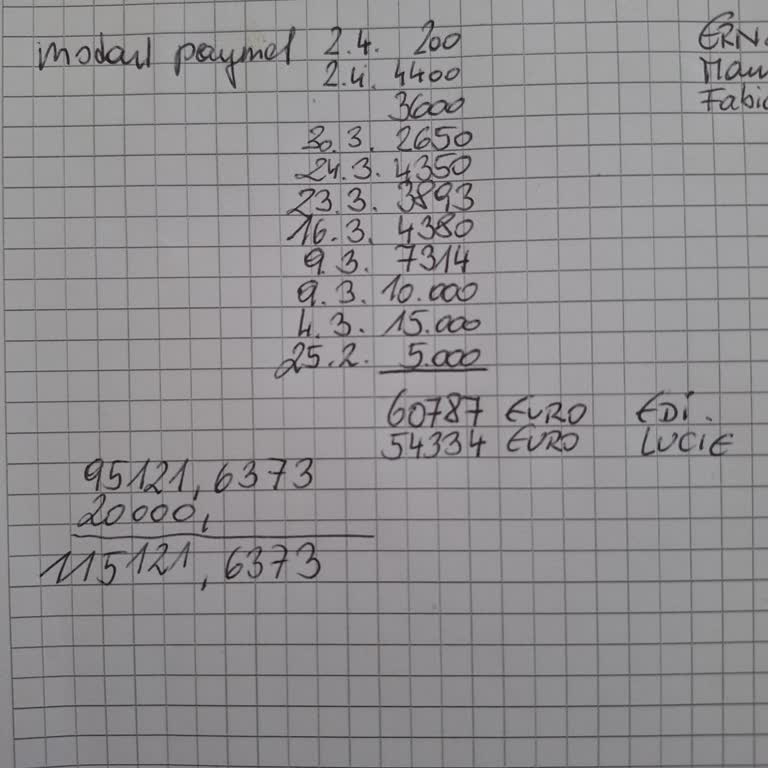 modaul paymel 2.4. 200 ERN
2.4. 4400 Mau
3600 Fabio
30.3. 2650
24.3. 4350
23.3. 3893
16.3. 4380
9.3. 7314
9.3. 10.000
4.3. 15.000
25.2. 5.000
60787 EURO EDI.
54334 EURO LUCIE
95121,6373
20000,
115121,6373